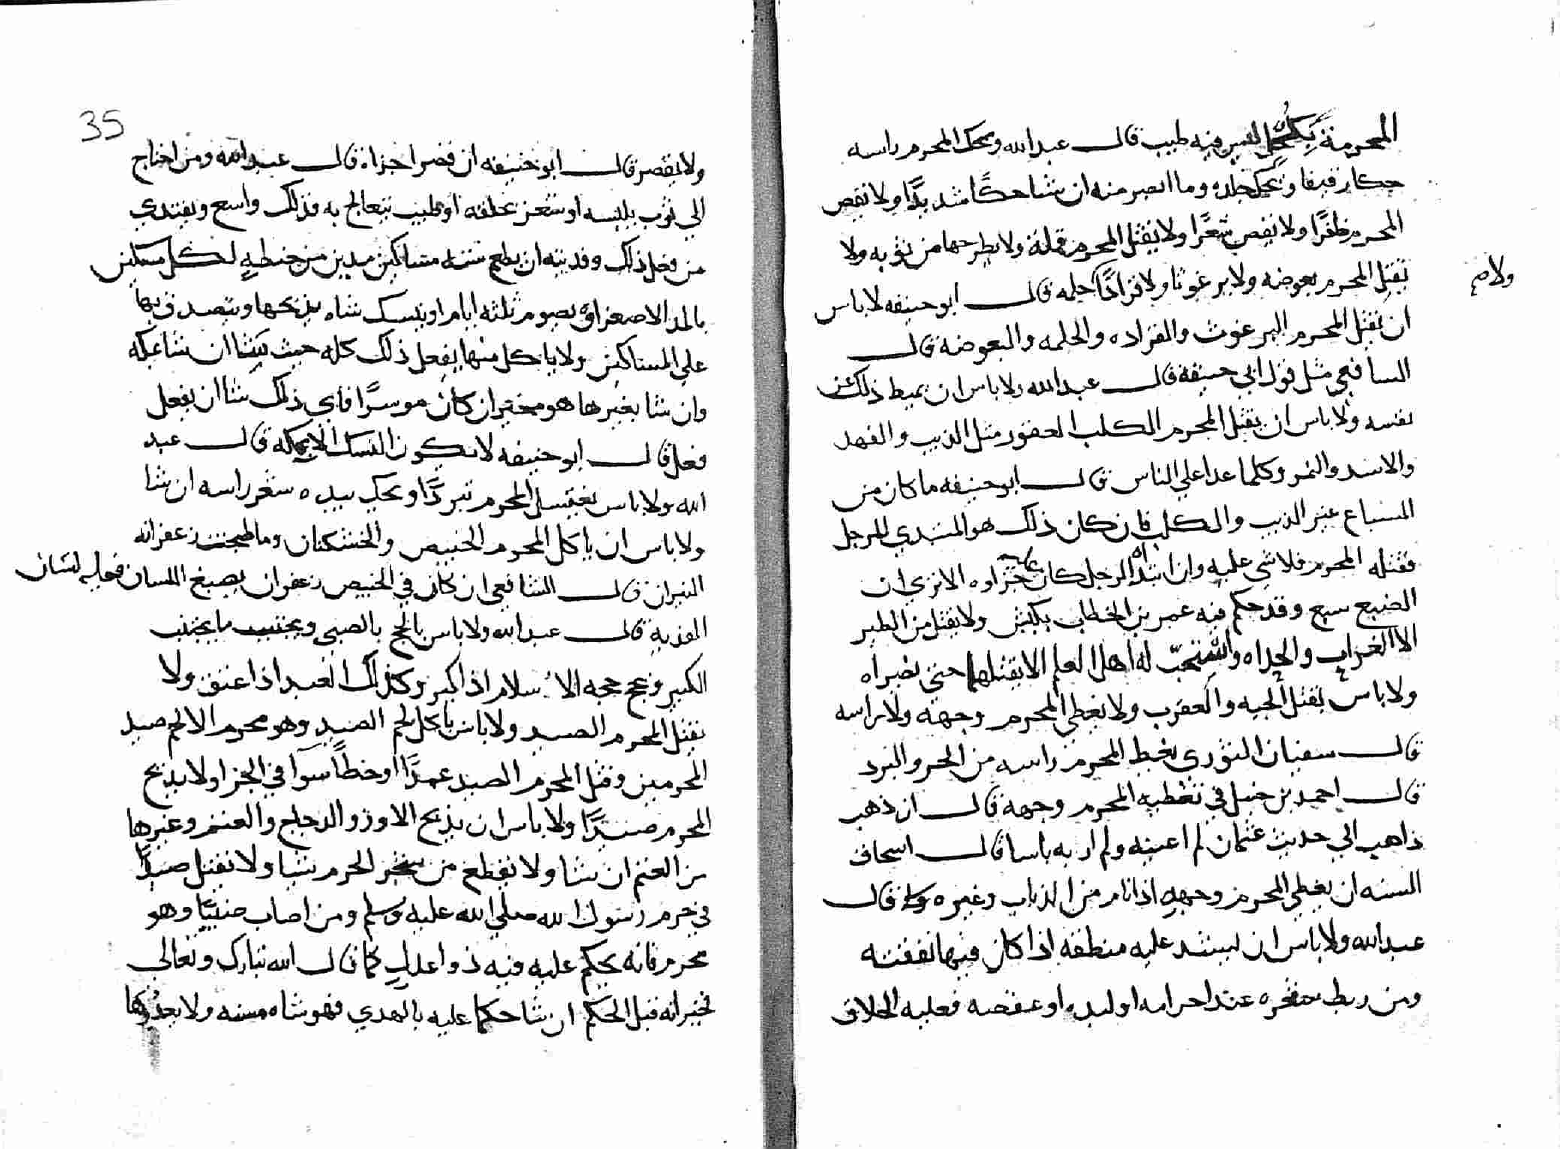 المحرمة بكحل ليس فيه طيب قال عبد الله ويحك المحرم راسه
حكا رفيقا ويحك جلده وما ابصر منه ان شا حكًا شديدًا ولا يقص
المحرم ظفرًا ولا يقص شعرًا ولا يقتل المحرم قملة ولا يطرحها من ثوبه ولا
يقتل المحرم بعوضه ولا برغوثا ولا قرادًا ولا حلمه قال ابو حنيفه لا باس
ان يقتل المحرم البرغوث والقراده والحلمه والبعوضه قال
الشافعي مثل قول ابي حنيفة قال عبد الله ولا باس ان يميط ذلك عن
نفسه ولا باس ان يقتل المحرم الكلب العقور مثل الذيب والفهد
والاسد والنمر وكلما عدا علي الناس قال ابو حنيفه ما كان من
السباع غير الذيب والكلب فان كان ذلك هو المبتدي للرجل
فقتله المحرم فلا شي عليه وان ابتداه الرجل كان عليه جزاوه الا تري ان
الضبع سبع وقد حكم فيه عمر بن الخطاب بكبش ولا يقتل من الطير
الا الغراب والحداه والمستحب له اهل العلم الا يقتلها حتي يضراه
ولا باس بقتل الحيه والعقرب ولا يغطي المحرم وجهه ولا راسه
قال سفيان الثوري يغط المحرم راسه من الحر والبرد
قال احمد بن حنبل في تغطيه المحرم وجهه قال ان ذهب
ذاهب الي حديث عثمان لم اعبه ولم ار به باسا قال اسحاق
السنه ان يغطي المحرم وجهه اذا نام من الذباب وغيره قال
عبد الله ولا باس ان يشد عليه منطقه اذا كان فيها نفقته
ومن ربط ضفره عند احرامه او لبده او عقصه فعليه الحلاق
35
ولا يقصر قال ابو حنيفه ان قصر اجزاه قال عبد الله ومن احتاج
الي ثوب يلبسه او شعر يحلقه او طيب يتعالج به فذلك واسع ويفتدي
من فعل ذلك وفديته ان يطعم سته مساكين مدين من حنطه لكل مسكين
بالمد الاصغر او يصوم ثلثه ايام او ينسك شاه يذبحها ويتصدق بها
علي المساكين ولا ياكل منها يفعل ذلك كله حيث يشا ان شا بمكه
وان شا بغيرها هو مخير ان كان موسرًا فاي ذلك شا ان يفعل
فعل قال ابو حنيفه لا يكون النسك الا بمكه قال عبد
الله ولا باس يغتسل المحرم تبردًا ويحك بيده شعر راسه ان شا
ولا باس ان ياكل المحرم الخبيص والخشكنان وما طبخت زعفرانه
النيران قال الشافعي ان كان في الخبيص زعفران يصبغ اللسان فعليه لسان
الفديه قال عبد الله ولا باس بالحج بالصبي ويجتنب ما يجتنب
الكبير وتحج حجه الاسلام اذا كبر وكذلك العبد اذا عتق ولا
يقتل المحرم الصيد ولا باس ياكل لحم الصيد وهو محرم الا لحم صيد
المحرمين وقتل المحرم الصيد عمدًا او خطأً سوآ في الجزا ولا يذبح
المحرم صيدًا ولا باس ان يذبح الاوز والدجاج والغنم وغيرها
من الغنم ان شا ولا يقطع من شجر الحرم شيا ولا يقتل صيدًا
في حرم رسول الله صلي الله عليه وسلم ومن اصاب صيدًا وهو
محرم فانه يحكم عليه فيه ذوا عدل كما قال الله تبارك وتعالى
تخيرانه قبل الحكم ان شا حكما عليه بالهدي فهو شاه مسنه ولا